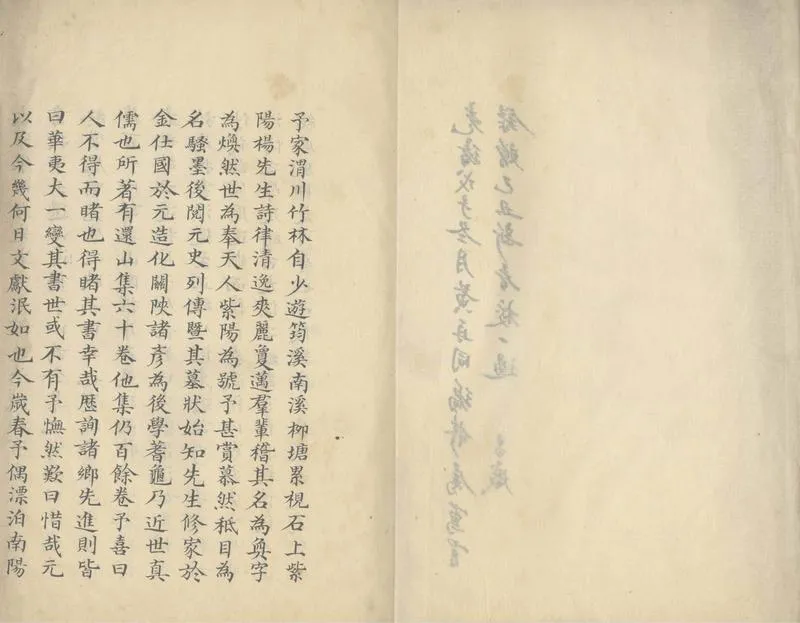 光緒戊子冬月黃再同編修屬寫官
錄竣己丑新春校一過
予家渭川竹林自少遊筠溪南溪柳塘累視石上紫
陽楊先生詩律清逸爽麗夐邁羣輩稽其名為奐字
為煥然世為奉天人紫陽為號予甚賞慕然秖目為
名騷墨後閱元史列傳暨其墓狀始知先生修家於
金仕國於元造化關陝諸彥為後學蓍龜乃近世真
儒也所著有還山集六十卷他集仍百餘卷予喜曰
人不得而睹也得睹其書幸哉歷詢諸鄉先進則皆
曰華夷大一變其書世或不有予憮然歎曰惜哉元
以及今幾何日文獻泯如也今歲春予偶漂泊南陽